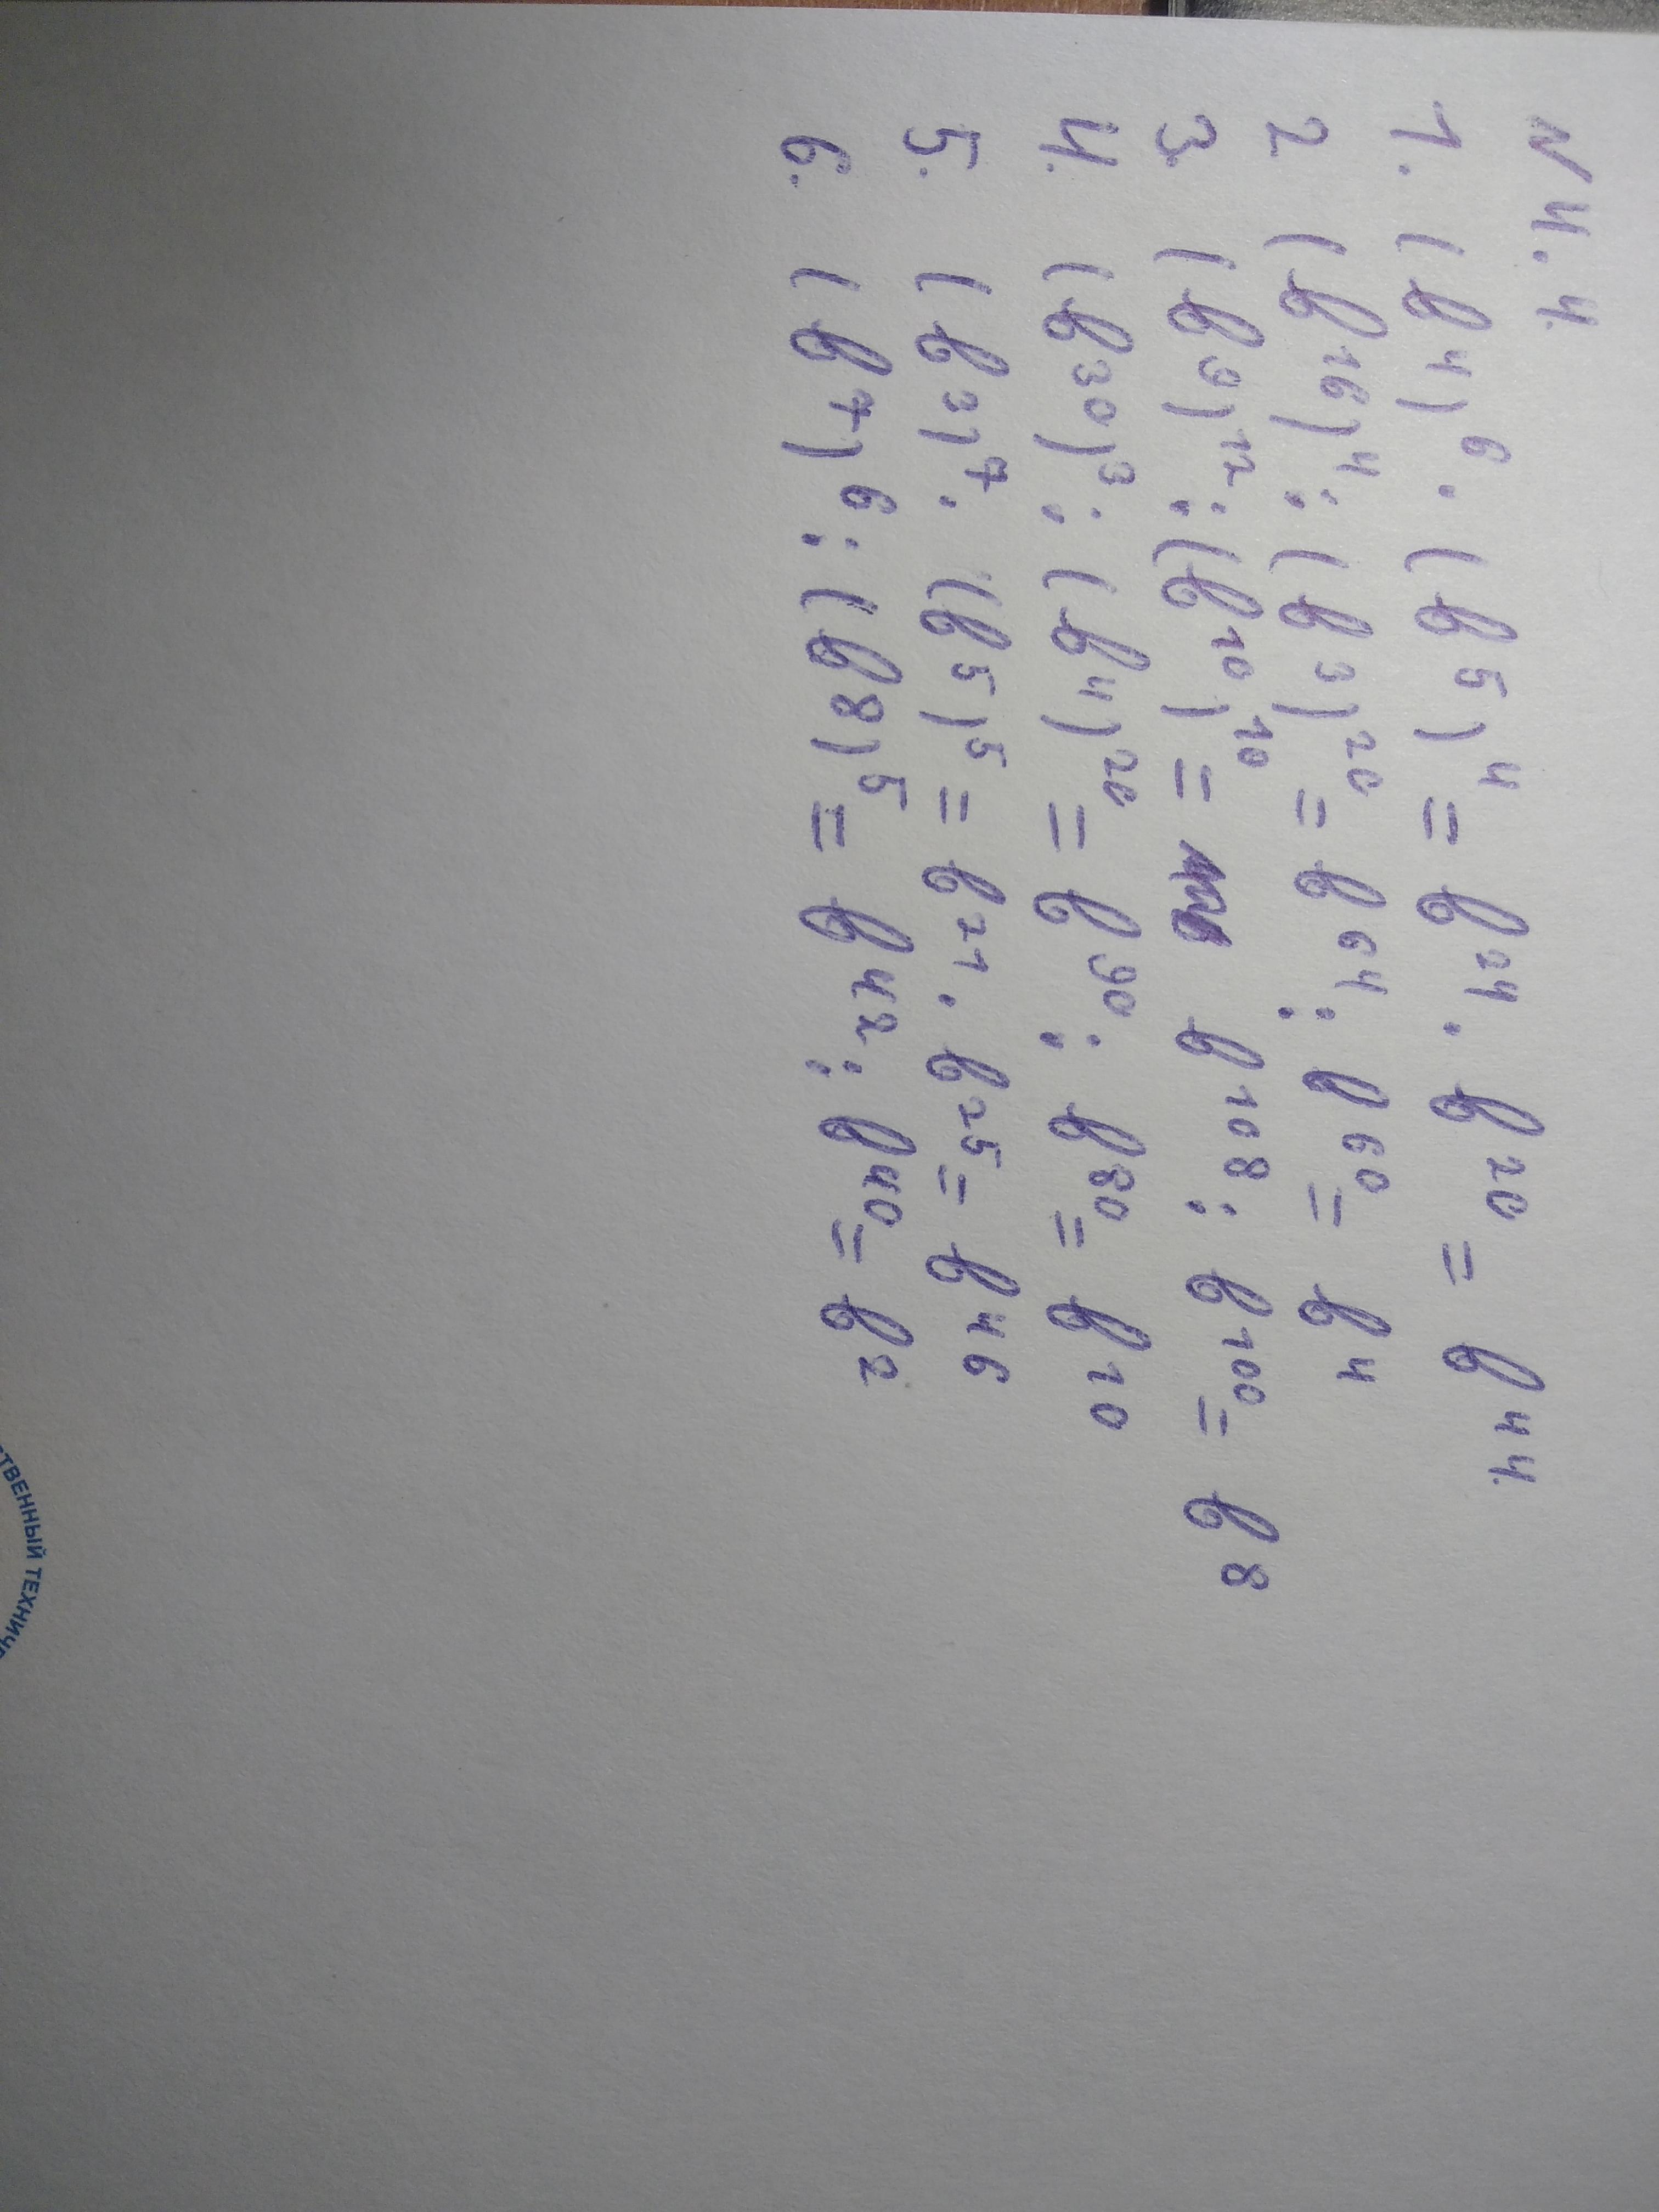 N 4.4.
1. (b⁴)⁶ · (b⁵)⁴ = b²⁴ · b²⁰ = b⁴⁴.
2 (b¹⁶)⁴ : (b³)²⁰ = b⁶⁴ : b⁶⁰ = b⁴
3 (b⁹)¹² : (b¹⁰)¹⁰ = b¹⁰⁸ : b¹⁰⁰ = b⁸
4. (b³⁰)³ : (b⁴)²⁰ = b⁹⁰ : b⁸⁰ = b¹⁰
5. (b³)⁷ · (b⁵)⁵ = b²¹ · b²⁵ = b⁴⁶
6. (b⁷)⁶ : (b⁸)⁵ = b⁴² : b⁴⁰ = b²